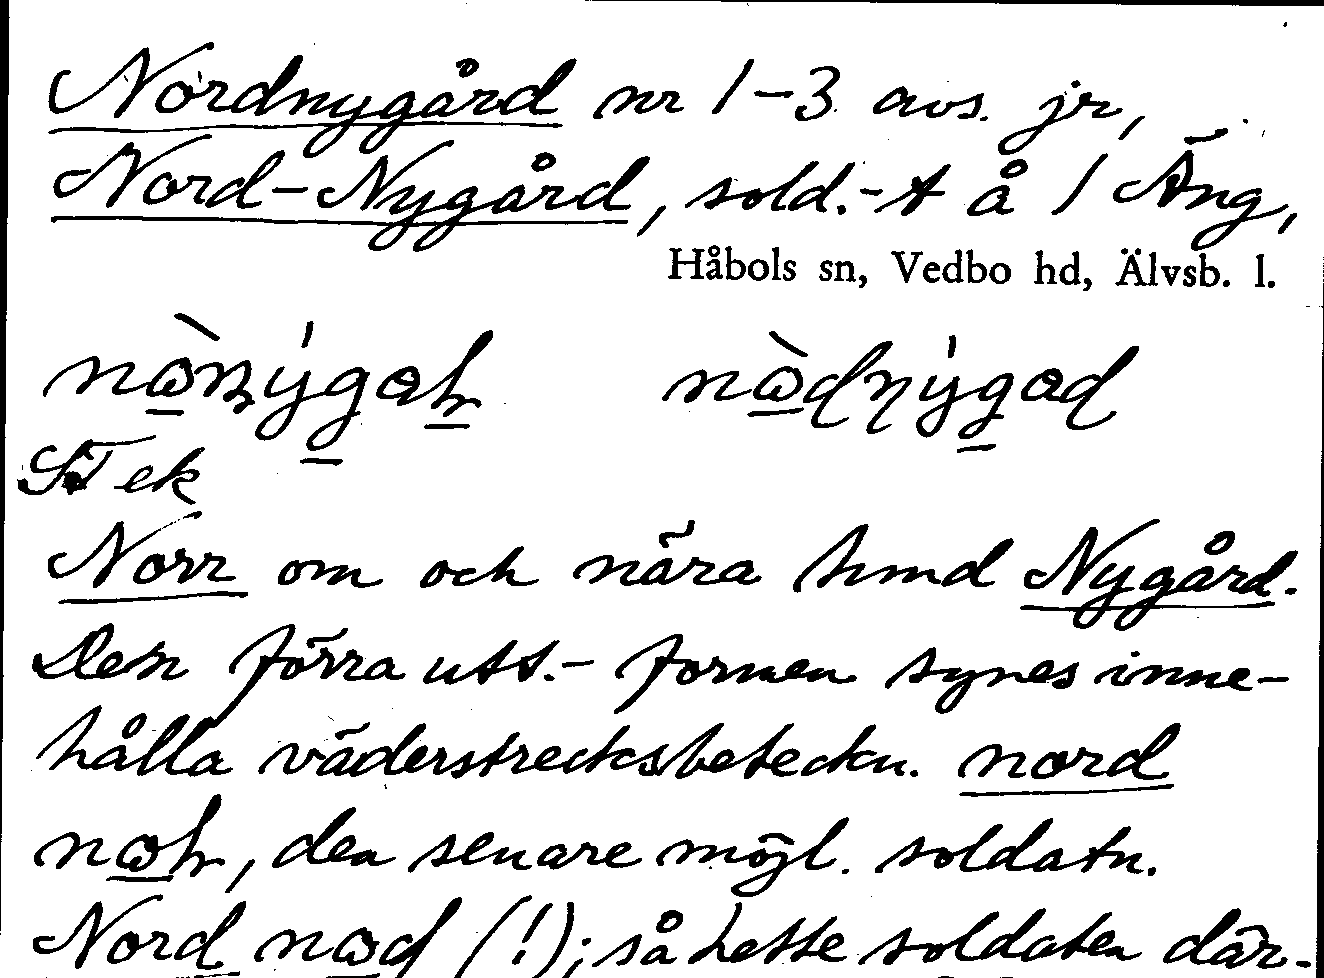 Nordnygård nr 1-3 avs. jr,
Nord-Nygård, sold.-t å 1 Äng,
Håbols sn, Vedbo hd, Älvsb. l.
ek
Norr om och nära hmd Nygård.
Den förra utt.-formen synes inne-
hålla väderstrecksbeteckn. nord
, den senare möjl. soldatn.
Nord (!); så hette soldaten där-